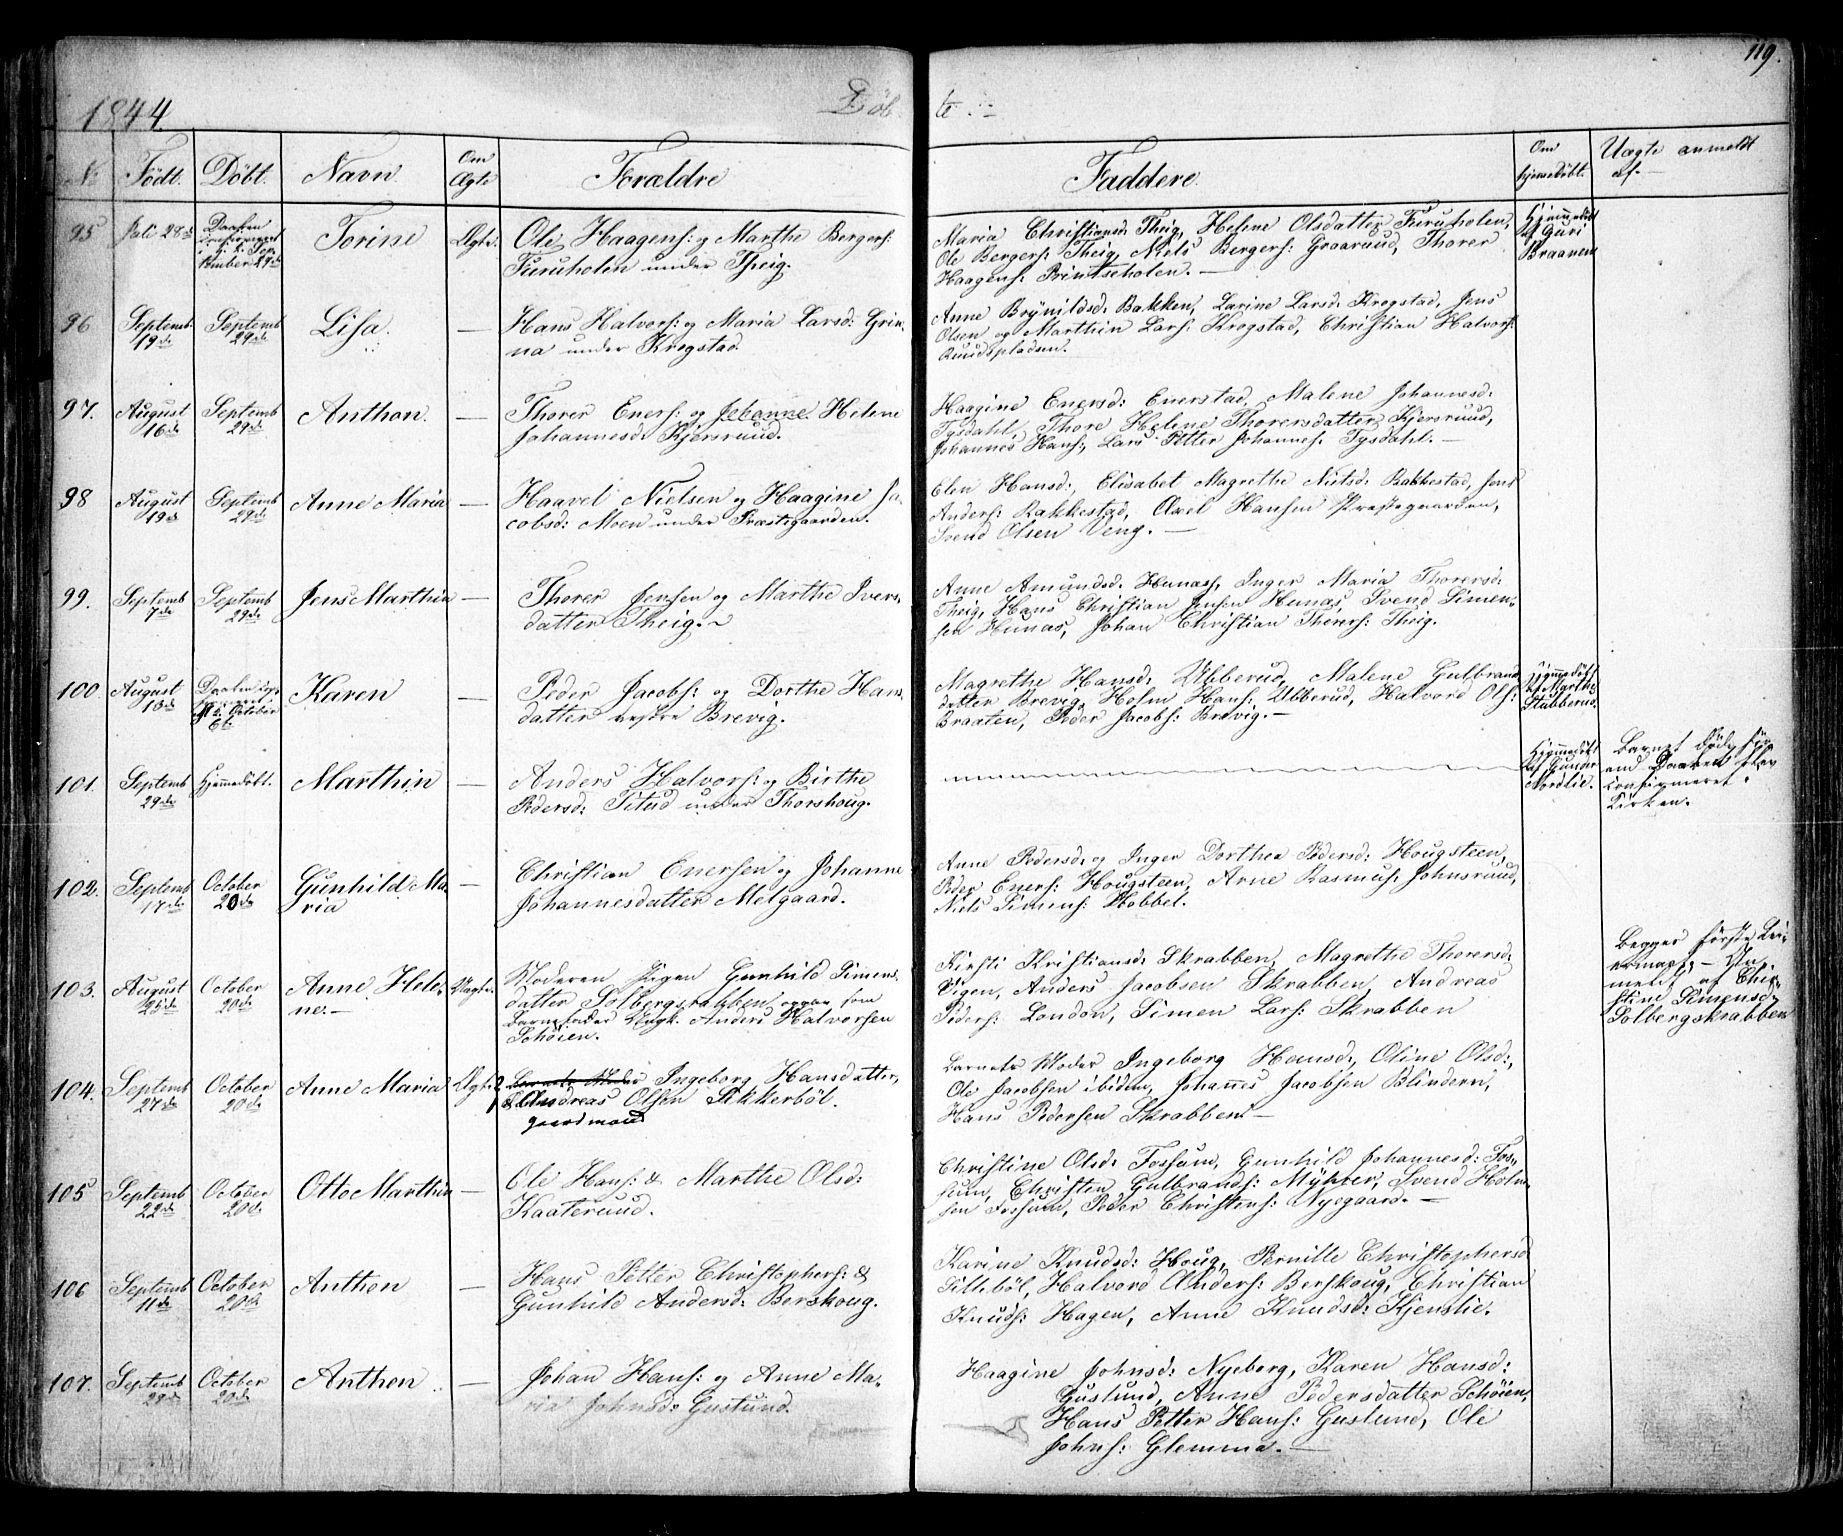 119.
1844.
Döb
te.
No
Födt.
Döbt.
Navn
Om Ægte
Forældre
Faddere.
Om hjemedöbt.
Uægte anmeldt af.
95
Juli 28de
Daaben
tember 29de
Torine
Ægte.
Ole Haagens: og Marthe Bergers:
Furuholen under Theig.
Maria Christiansd: Theig, Helene Olsdatter Furuholen,
Ole Bergers: Theig, Niels Bergers: Graarud, Thorer
Haagens: Printseholen.
Hjemmedöbt
af Guri
Braanem
96
Septemb
19de
Septemb
29de
Lisa.
—
Hans Halvors: og Maria Larsd: Grin,
na under Krogstad.
Anne Brynildsd: Bakken, Larine Larsd: Krogstad, Jens
Olsen og Marthin Lars: Krogstad, Christian Halvors:
Ruudspladsen.
97.
August
16de
Septemb
29de
Anthon.
—
Thorer Eners: og Johanne Helene
Johannesd: Kjersruud.
Haagine Enersd: Enerstad, Malene Johannesd:
Tysdahl, Thore Helene Thorersdatter Kjersruud,
Johannes Hans:, Lars Petter Johannes: Tysdahl. —
98
August
19de
Septemb
29de
Anne Maria
—
Haavel Nielsen og Haagine Ja,
cobsd: Moen under Præstegaarden.
Elen Hansd:, Elisabet Magrethe Nielsd: Rakkestad, Jens
Anders: Rakkestad, Axel Hansen Præstegaarden,
Svend Olsen Veng. —
99.
Septemb
7de
Septemb
29de
Jens Marthin
—
Thorer Jensen og Marthe Ivers,
datter Theig.
Anne Amundsd: Hunass, Inger Maria Thorersd:
Theig, Hans Christian Jensen Hunas, Svend Simen,
sen Hunas, Johan Christian Thorers: Theig.
100.
August
18de
Daaben
October
6te
Karen
—
Peder Jacobs: og Dorthe Hans
datter vestre Brevig.
Magrethe Hansd: Ubberud, Malene Gulbrand
datter Brevig, Holm Hans: Ubberud, Halvord Ols:
Braaten, Peder Jacobs: Brevig. —
Hjemmedöbt
af Marthe
Stubberud.
101.
Septemb
29de
Hjemmedöbt.
Marthin
—
Anders Halvors: og Birthe
Pedersd: Titud under Thorshoug.
Hjemmedöbt
af Gunder
Nordlie.
Barnet döde för
end Daaben blev
confirmeret i
Kirken.
102.
Septemb
17de
October
20de
Gunhild Ma,
ria
—
Christian Enersen og Johanne
Johannesdatter Melgaard.
Anne Pedersd: og Inger Dorthea Pedersd: Hougsteen,
Peder Eners: Hougsteen, Arne Rasmus: Johnsruud,
Niels Simens: Hobbel.
103.
August
25de
October
20de
Anne Hele,
ne.—
Uægte.
Moderen Pigen Gunhild Simens,
datter Solbergskrabben, opgav som
Barnefader Ungk: Anders Halvorsen
Schöien.
Kirsti Kristiansd: Skrabben, Magrethe Thorersd:
Vigen, Anders Jacobsen Skrabben, Andreas
Peders: London, Simen Lars: Skrabben
Begges förste Lei,
ermaal; — An,
meldt af Chri,
stine Simensd:
Solbergskrabben
104.
Septemb
27de
October
20de
Anne Maria
Ægte.
2 Barnets Moder Ingeborg Hansdatter,
1 Andreas Olsen Sikkerböl.
gaardmand
Barnets Moder Ingeborg Hansd:, Oline Olsd:,
Ole Jacobsen ibidem, Johannes Jacobsen Blindern,
Hans Pedersen Skrabben. —
105
Septemb
22de
October
20de
Otto Marthin
—
Ole Hans: & Marthe Olsd:
Kaaterud.
Christine Olsd: Fossum, Gunhild Johannesd: Fos,
sum, Christen Gulbrands: Mykter, Svend Holm
sen Fossum, Peder Christens: Nyegaard. —
106
Septemb
11de
October
20de
Anthon
—
Hans Petter Christophers: &
Gunhild Andersd: Berskoug.
Karine Knudsd: Houg, Pernille Christophersd
Sikkeböl, Halvord Anders: Berskoug, Christian
Knuds: Hagen, Anne Knudsd: Kjenslie.
107.
Septemb
28de
October
20de
Anthon.
—
Johan Hans: og Anne Ma,
ria Johnsd: Guslund.
Haagine Johnsd: Nyeborg, Karen Hansd:
Guslund, Anne Pedersdatter Schöien,
Hans Petter Hans: Guslund, Ole
Johns: Glemma. —